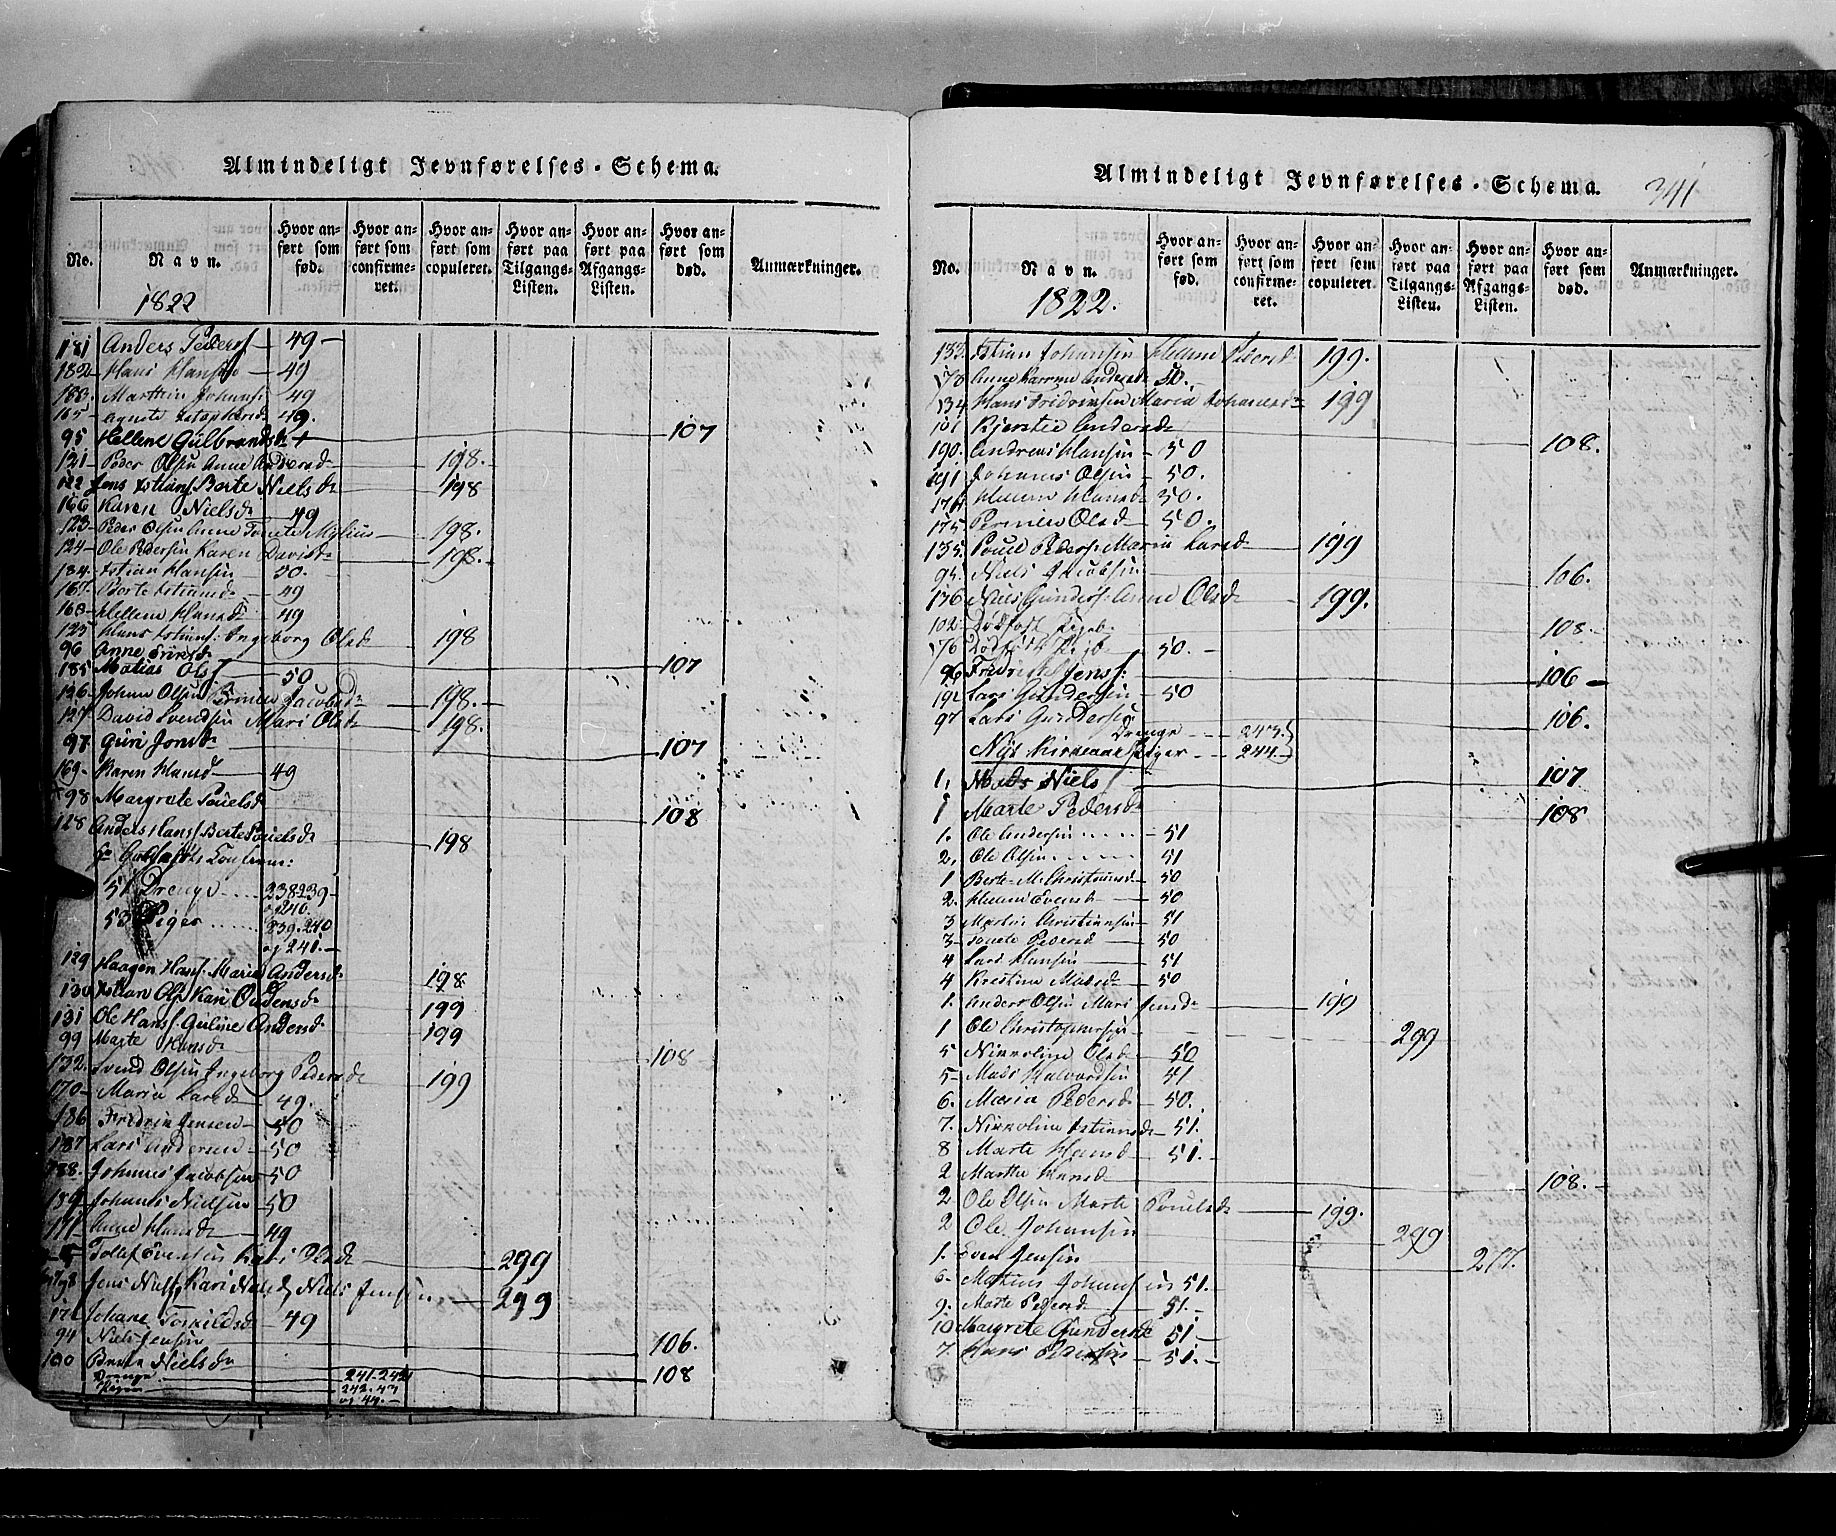 Almindeligt Jevnførelses-Schema.
No. Navn. Hvor anført som fød. Hvor anført som confirmeret. Hvor anført som copuleret. Hvor anført paa Tilgangs-Listen. Hvor anført paa Afgangs-Listen. Hvor anført som død. Anmærkninger.
1822
181 Anders Peders 49
182 Hans Hansen 49
183 Marthin Johans 49
165 Agnete 49.
95 Hellene Gulbrandsd 107
121 Peder Olsen Anne Andersd 198.
122 Jens Berte Nielsd 198
166 Karen Nielsd 49
123 Peder Olsen Anne Mylius 198.
124 Ole Pedersen Karen Davidsd 198.
184. Hansen 50.
167. Berte 49
168 Hellene Hansd 49
125 Hans Ingeborg Olsd 198
96 Anne 
185 Matias Ols 50 107
126 Johan Olsen Jacobsd 198.
127 David Svendsen Mari Olsd 198.
97 Guri Jonsd 107
169 Karen Hansd 49
98 Margrete Pouelsd 108
128 Anders Hans Berte Pouelsd 198
51 Drenge 238 239
og 240.
53 Piger 239. 240
og 241.
129 Haagen Hans. Maria Andersd 198
130 Ols Kari Oudensd 199
131 Ole Hans. Guline Andersd 199
99 Marte Hansd 108
132. Svend Olsen Ingeborg Pedersd 199
170 Maria Larsd 49.
186 Fredrik Jensen 50
187 Lars Andersen 50
188. Johannes Jacobsen 50
189 Johannes Nielsen 50
171 Anne Hansd 49
Tollef Kari Olsd 299
Jens Niels Kari Niels Jensen 299
172 Johane Torkildsd 49
94 Niels Jensen 106.
100 Berte Nielsd 108
Drenge 241. 242
Piger 242. 43
og 44.
Almindeligt Jevnførelses-Schema. 341
No. Navn. Hvor anført som fød. Hvor anført som confirmeret. Hvor anført som copuleret. Hvor anført paa Tilgangs-Listen. Hvor anført paa Afgangs-Listen. Hvor anført som død. Anmærkninger.
1822.
133. Johansen Hellene Pedersd 199.
173 Anne Karren Andersd 50.
134 Hans Fridrichsen Maria 199
101 Kjerstie Andersd 108.
190. Andreas Hansen 50
191 Johannes Olsen 50.
174 Hellene Hansd 50.
175 Olsd 50.
135. Pouel Peders. Maria Larsd 199
95. Niels Jacobsen 106.
136 Niels Gunders. Anne Olsd 199.
102 Dødfødt Pigeb. 108.
176 Dødfødt Pigeb 50.
96 Fridrik Jens. 106
192 Lars Gundersen 50
97 Lars Gundersen 106.
Drenge 243.
Nyt Kirkeaar Piger 244
1, Mads Niels 107
1 Marte Pedersd 108
1. Ole Andersen 51
2. Ole Olsen 51
1 Berte M. Christiansd 50
2. Hellene Evensd 50
3 Martin Christiansen 51
3 Pedersd 50
4 Lars Hansen 51
4 Kristine Madsd 50
1. Anders Olsen Mari Jensd 199
1 Ole Christophersen 299
5 Nikkoline Olsd 50
5 Mads Halvordsen 41
6. Maria Pedersd 50.
7. Nikkoline 51.
8 Marte Hansd 51.
2 Marthe Hansd 108.
2 Ole Olsen Marte Pouelsd 199.
2 Ole Johansen 299
1. Even Jensen 277.
6 Martinus Johansen 51.
9. Marte Pedersd 51.
10 Margrete Gundersd 51
7. Hans Pedersen 51.